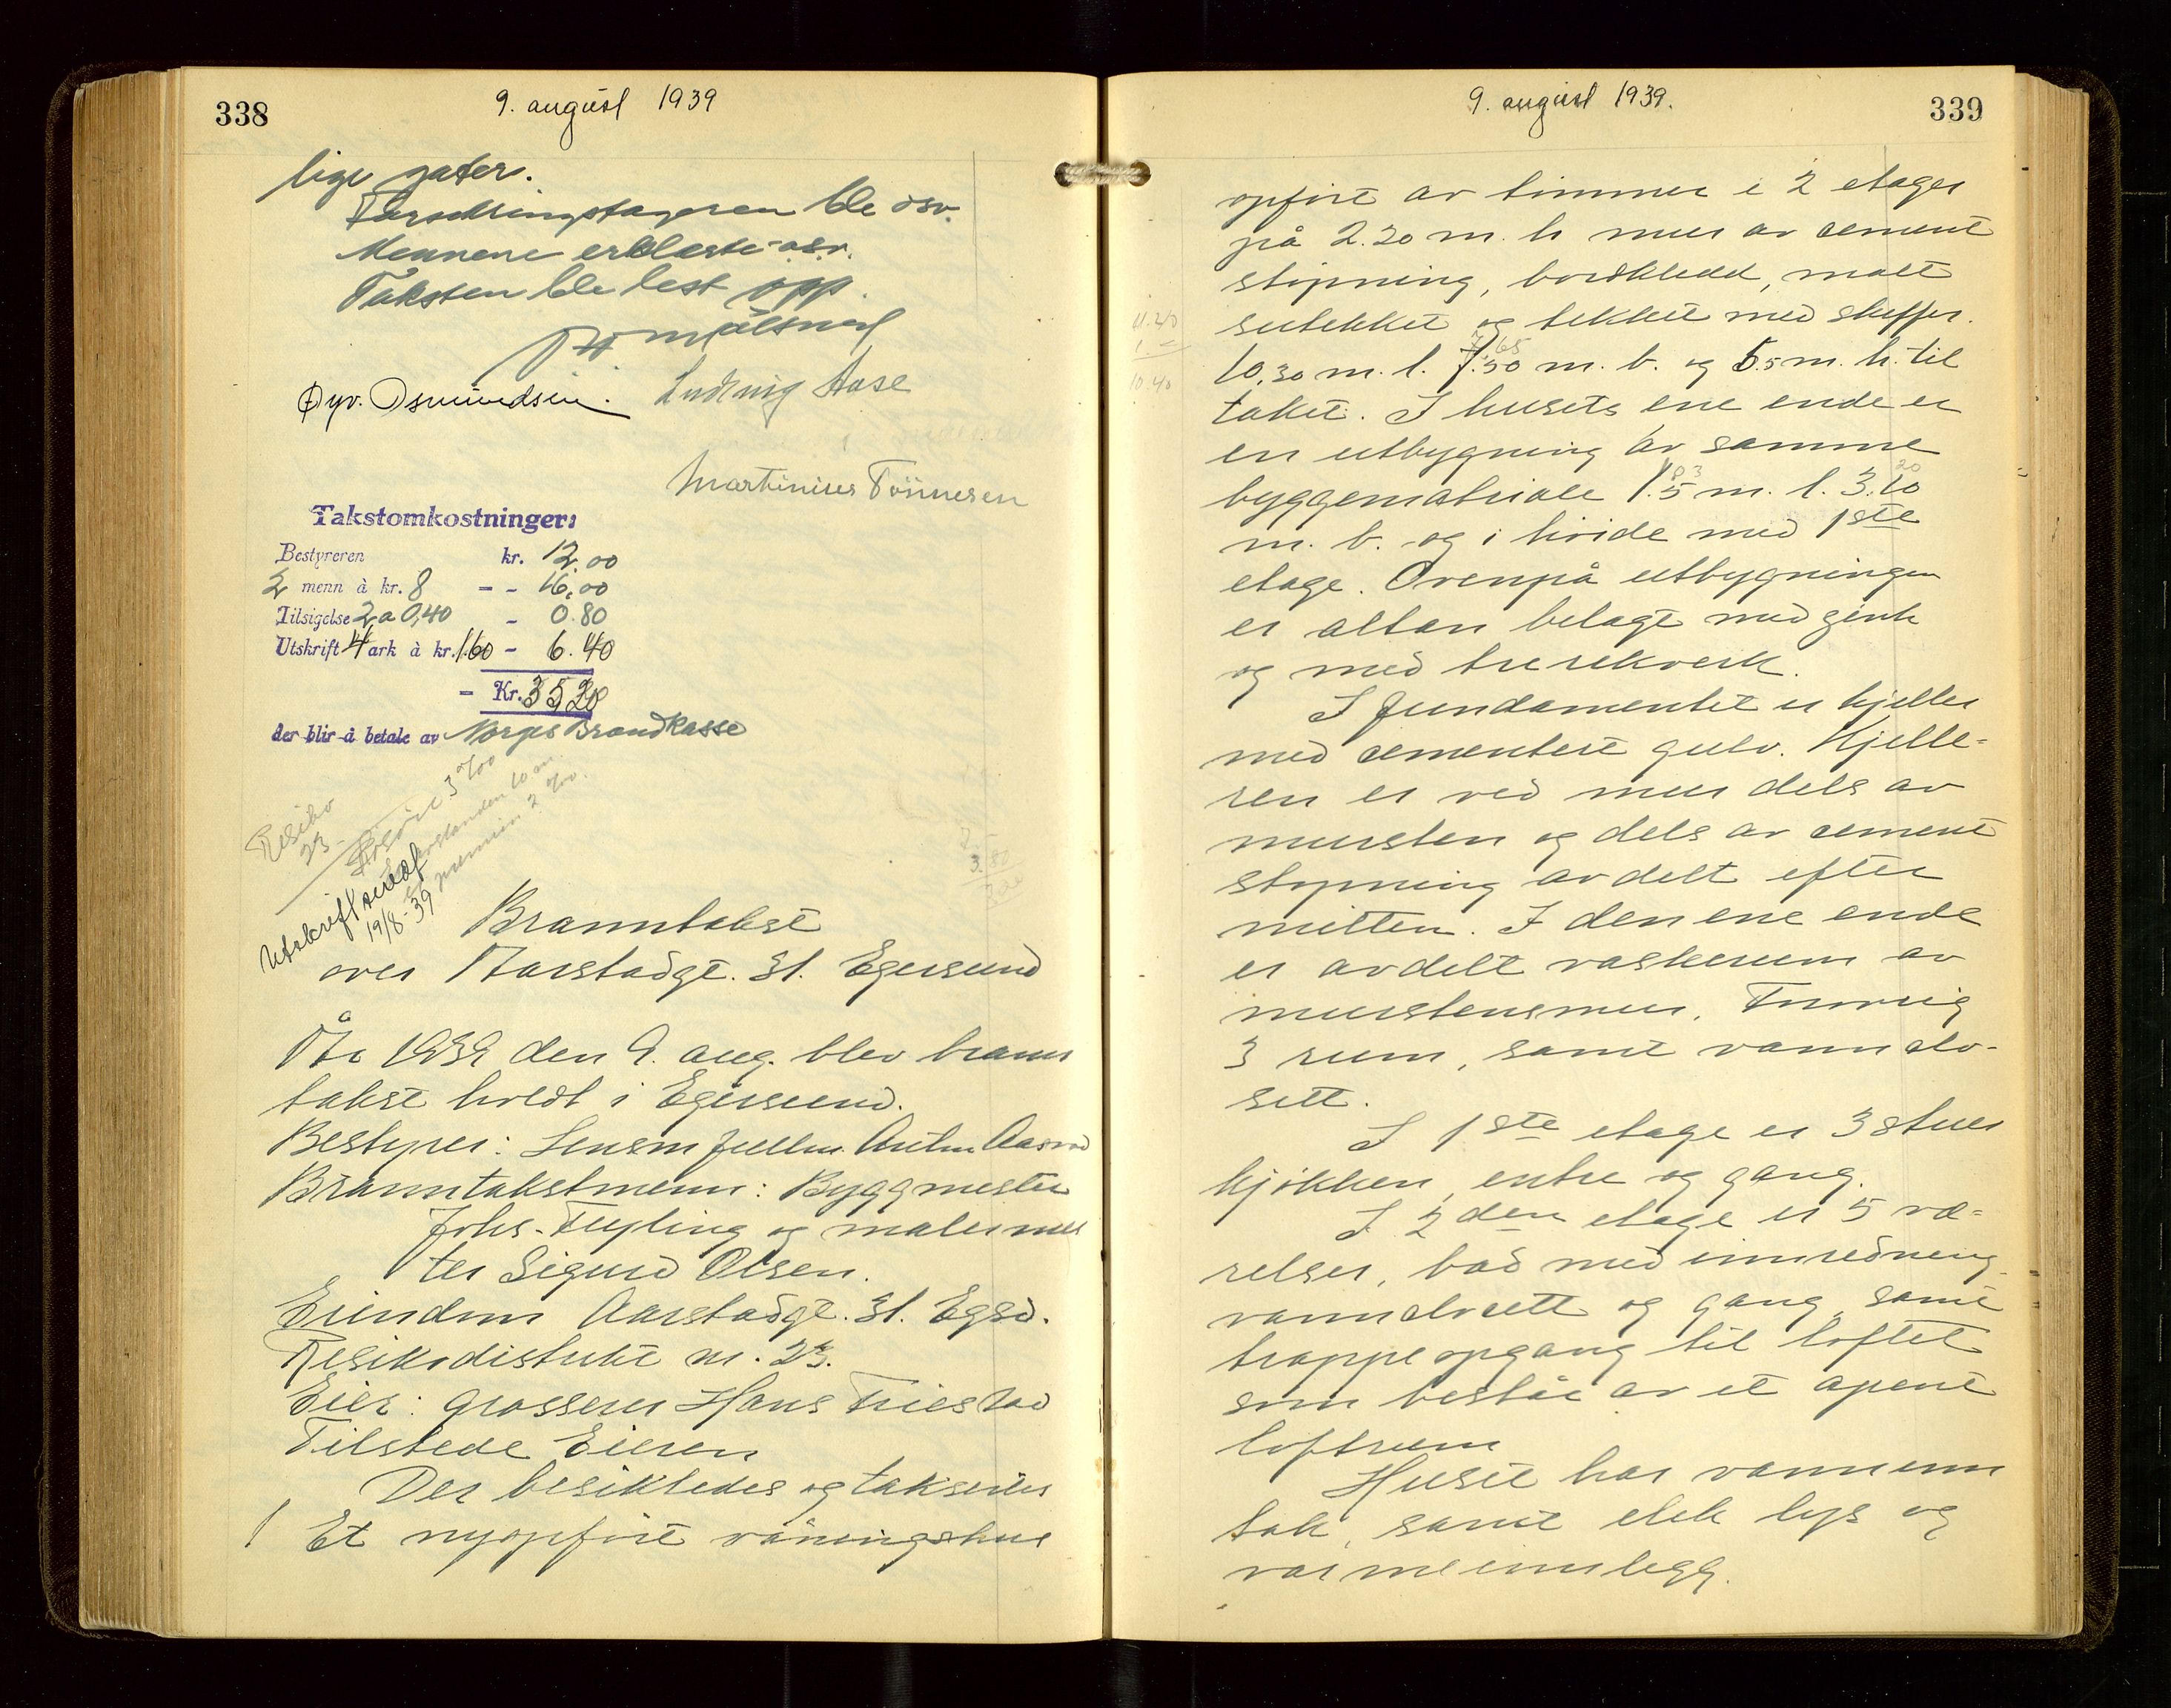 338
9. august 1939
lige gater.
Forsikringstageren ble osv.
Mennene erklærte osv.
Taksten ble lest opp.
Øyv. Osmundsen. Ludvig Aase
Martinius Tönnesen
Takstomkostninger:
Bestyreren kr. 12.00
2 menn à kr. 8 - - 16,00
Tilsigelse 2 a 0,40 - 0.80
Utskrift 4 ark à kr. 1.60 - 6.40
- Kr. 35,20
der blir å betale av Norges Brandkasse
Risiko
23
3 o/oo
Utskrift sendt
19/8-39
Branntakst
over Aarstadgt. 31. Egersund
År 1939 den 9. aug. blev brann
takst holdt i Egersund.
Bestyrer: Lensm fullm.
Branntakstmenn: Byggmester
Johs. Tuyling og malermes
ter Sigurd Olsen.
Eiendom Aarstadgt. 31. Egsd.
Risikodistrikt nr. 23.
Eier: Grosserer Hans Friestad
Tilstede Eieren
Der besiktedes og takseres
1 Et nyopført våningshus
9. august 1939.
339
opført av timmer i 2 etager
på 2.20 m. h mur av cement
støpning, bordkledd, malt
sutekket og tekket med skiffer.
11.40
1. -
10.40
65
10,30 m. l. 7.50 m. b. og 5.5 m. h. til
taket. I husets ene ende er
en utbygning av samme
byggematriale 1.5 m. l. 3.10
20
m. b. og i høide med 1ste
etage. Ovenpå utbygningen
er altan belagt med zink
og med tre rekverk.
I fundamentet er kjeller
med cementert gulv. Kjelle-
ren er ved mur dels av
mursten og dels av cement
støpning avdelt efter
mitten. I den ene ende
er avdelt vaskerum av
murstensmur. Forøvrig
3 rum, samt vannclo-
sett.
I 1ste etage er 3 stuer
kjøkken, entre og gang.
I 2den etage er 5 væ-
relser, bad med innredning
vannclosett og gang, samt
trappeopgang til loftet
som består av et åpent
loftrum
Huset har vanninn
tak, samt elek lys og
varmeinnlegg.